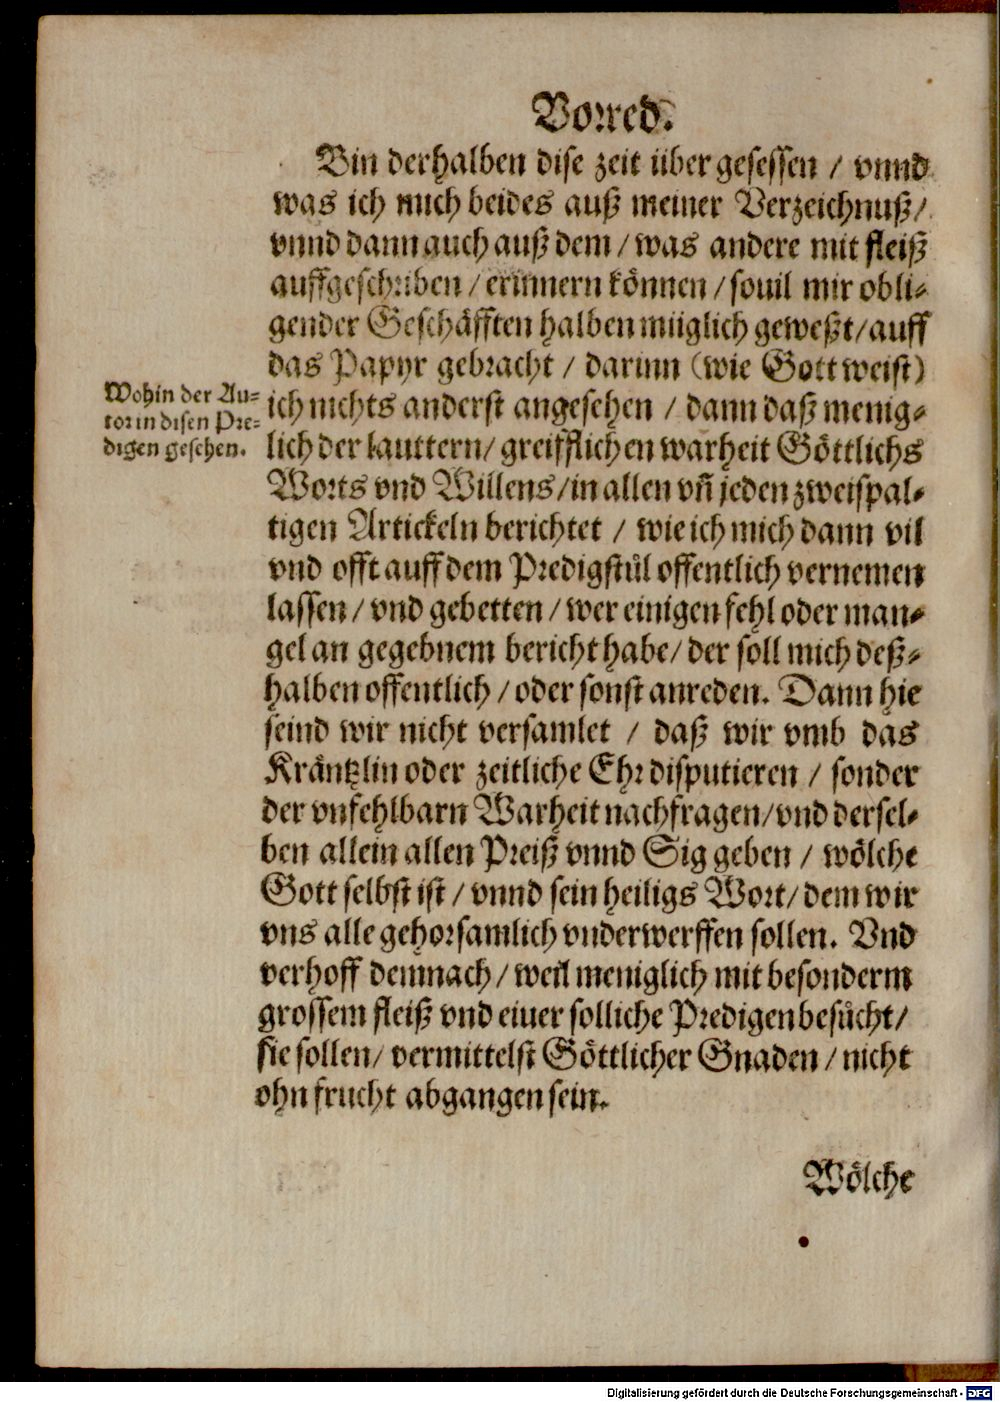 Vorred.
Bin derhalben dise zeit über gesessen / vnnd
was ich mich beides auß meiner Verzeichnuß/
vnnd dann auch auß dem / was andere mit fleiß
auffgeschriben / erinnern können / souil mir obli⸗
gender Geschäfften halben müglich geweßt / auff
das Papyr gebracht / darinn (wie Gott weist)
Wohin der Au⸗
tor in disen Pre⸗
digen gesehen.
ich nichts anderst angesehen / dann daß menig⸗
lich der lauttern / greifflichen warheit Göttlichs
Worts vnd Willens / in allen vñ jeden zweispal⸗
tigen Artickeln berichtet / wie ich mich dann vil
vnd offt auff dem Predigstůl offentlich vernemen
lassen / vnd gebetten / wer einigen fehl oder man⸗
gel an gegebnem bericht habe / der söll mich deß⸗
halben offentlich / oder sonst anreden. Dann hie
seind wir nicht versamlet / daß wir vmb das
Kräntzlin oder zeitliche Ehr disputieren / sonder
der vnfehlbarn Warheit nachfragen / vnd dersel⸗
ben allein allen Preiß vnnd Sig geben / wölche
Gott selbst ist / vnnd sein heiligs Wort / dem wir
vns alle gehorsamlich vnderwerffen sollen. Vnd
verhoff demnach / weil meniglich mit besonderm
grossem fleiß vnd eiuer solliche Predigen besůcht /
sie sollen / vermittelst Göttlicher Gnaden / nicht
ohn frucht abgangen sein.
Wölche
Digitalisierung gefördert durch die Deutsche Forschungsgemeinschaft - DFG